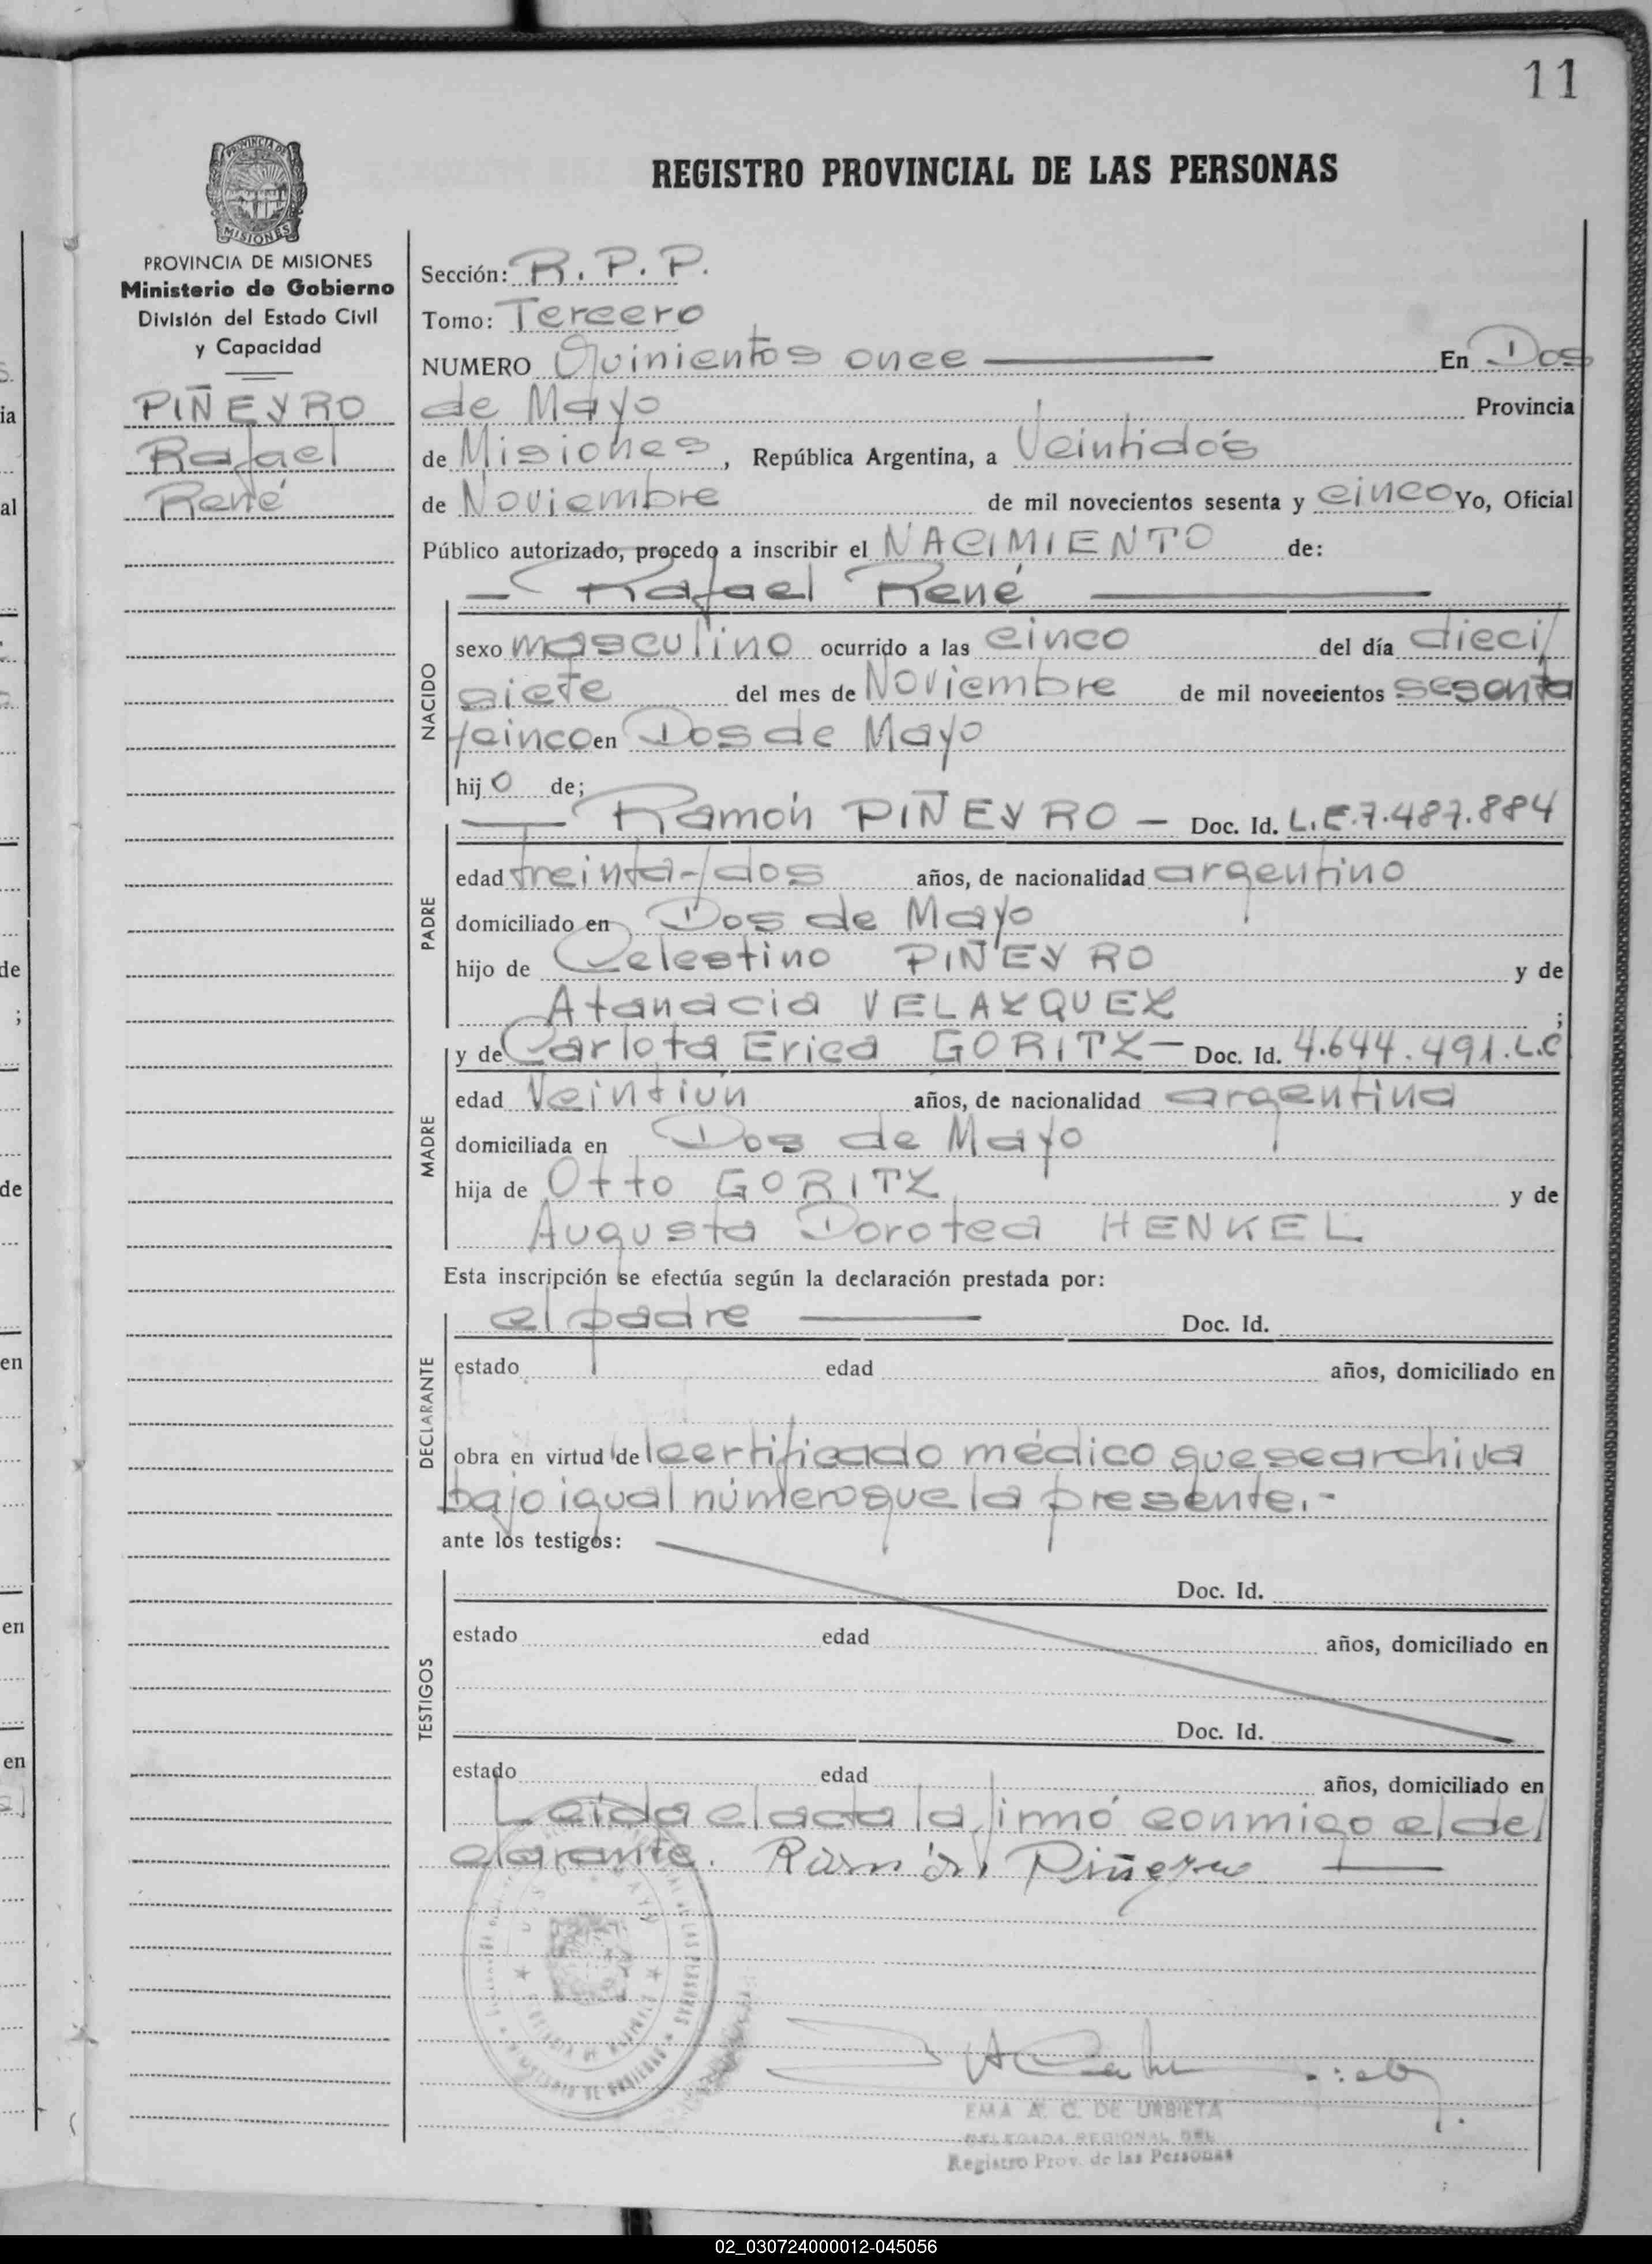 11
REGISTRO PROVINCIAL DE LAS PERSONAS
PROVINCIA DE
MISIONES
PROVINCIA DE MISIONES
Ministerio de Gobierno
División del Estado Civil
y Capacidad
PIÑEYRO
Rafael
René
Sección: R. P. P.
Tomo: Tercero
NUMERO Quinientos once En Dos
de Mayo Provincia
de Misiones, República Argentina, a Veintidós
de Noviembre de mil novecientos sesenta y cinco Yo, Oficial
Público autorizado, procedo a inscribir el NACIMIENTO de:
— Rafael René —
NACIDO
sexo masculino ocurrido a las cinco del día dieci/
siete del mes de Noviembre de mil novecientos sesenta
/cinco en Dos de Mayo
hijo de;
PADRE
— Ramón PIÑEYRO — Doc. Id. L.E.7.487.884
edad treinta-/dos años, de nacionalidad argentino
domiciliado en Dos de Mayo
hijo de Celestino PIÑEYRO y de
Atanacia VELAZQUEZ ;
MADRE
y de Carlota Erica GORITZ — Doc. Id. 4.644.491.L.C
edad Veintiún años, de nacionalidad argentina
domiciliada en Dos de Mayo
hija de Otto GORITZ y de
Augusta Dorotea HENKEL
Esta inscripción se efectúa según la declaración prestada por:
DECLARANTE
el padre — Doc. Id.
estado edad años, domiciliado en
obra en virtud de certificado médico que se archiva
bajo igual número que la presente.-
ante los testigos:
TESTIGOS
Doc. Id.
estado edad años, domiciliado en
Doc. Id.
estado edad años, domiciliado en
Leída el acta la firmó conmigo el de/
clarante. Ramón Piñeyro —
EMA A. C. DE URBIETA
DELEGADA REGIONAL DEL
Registro Prov. de las Personas
02_030724000012-045056